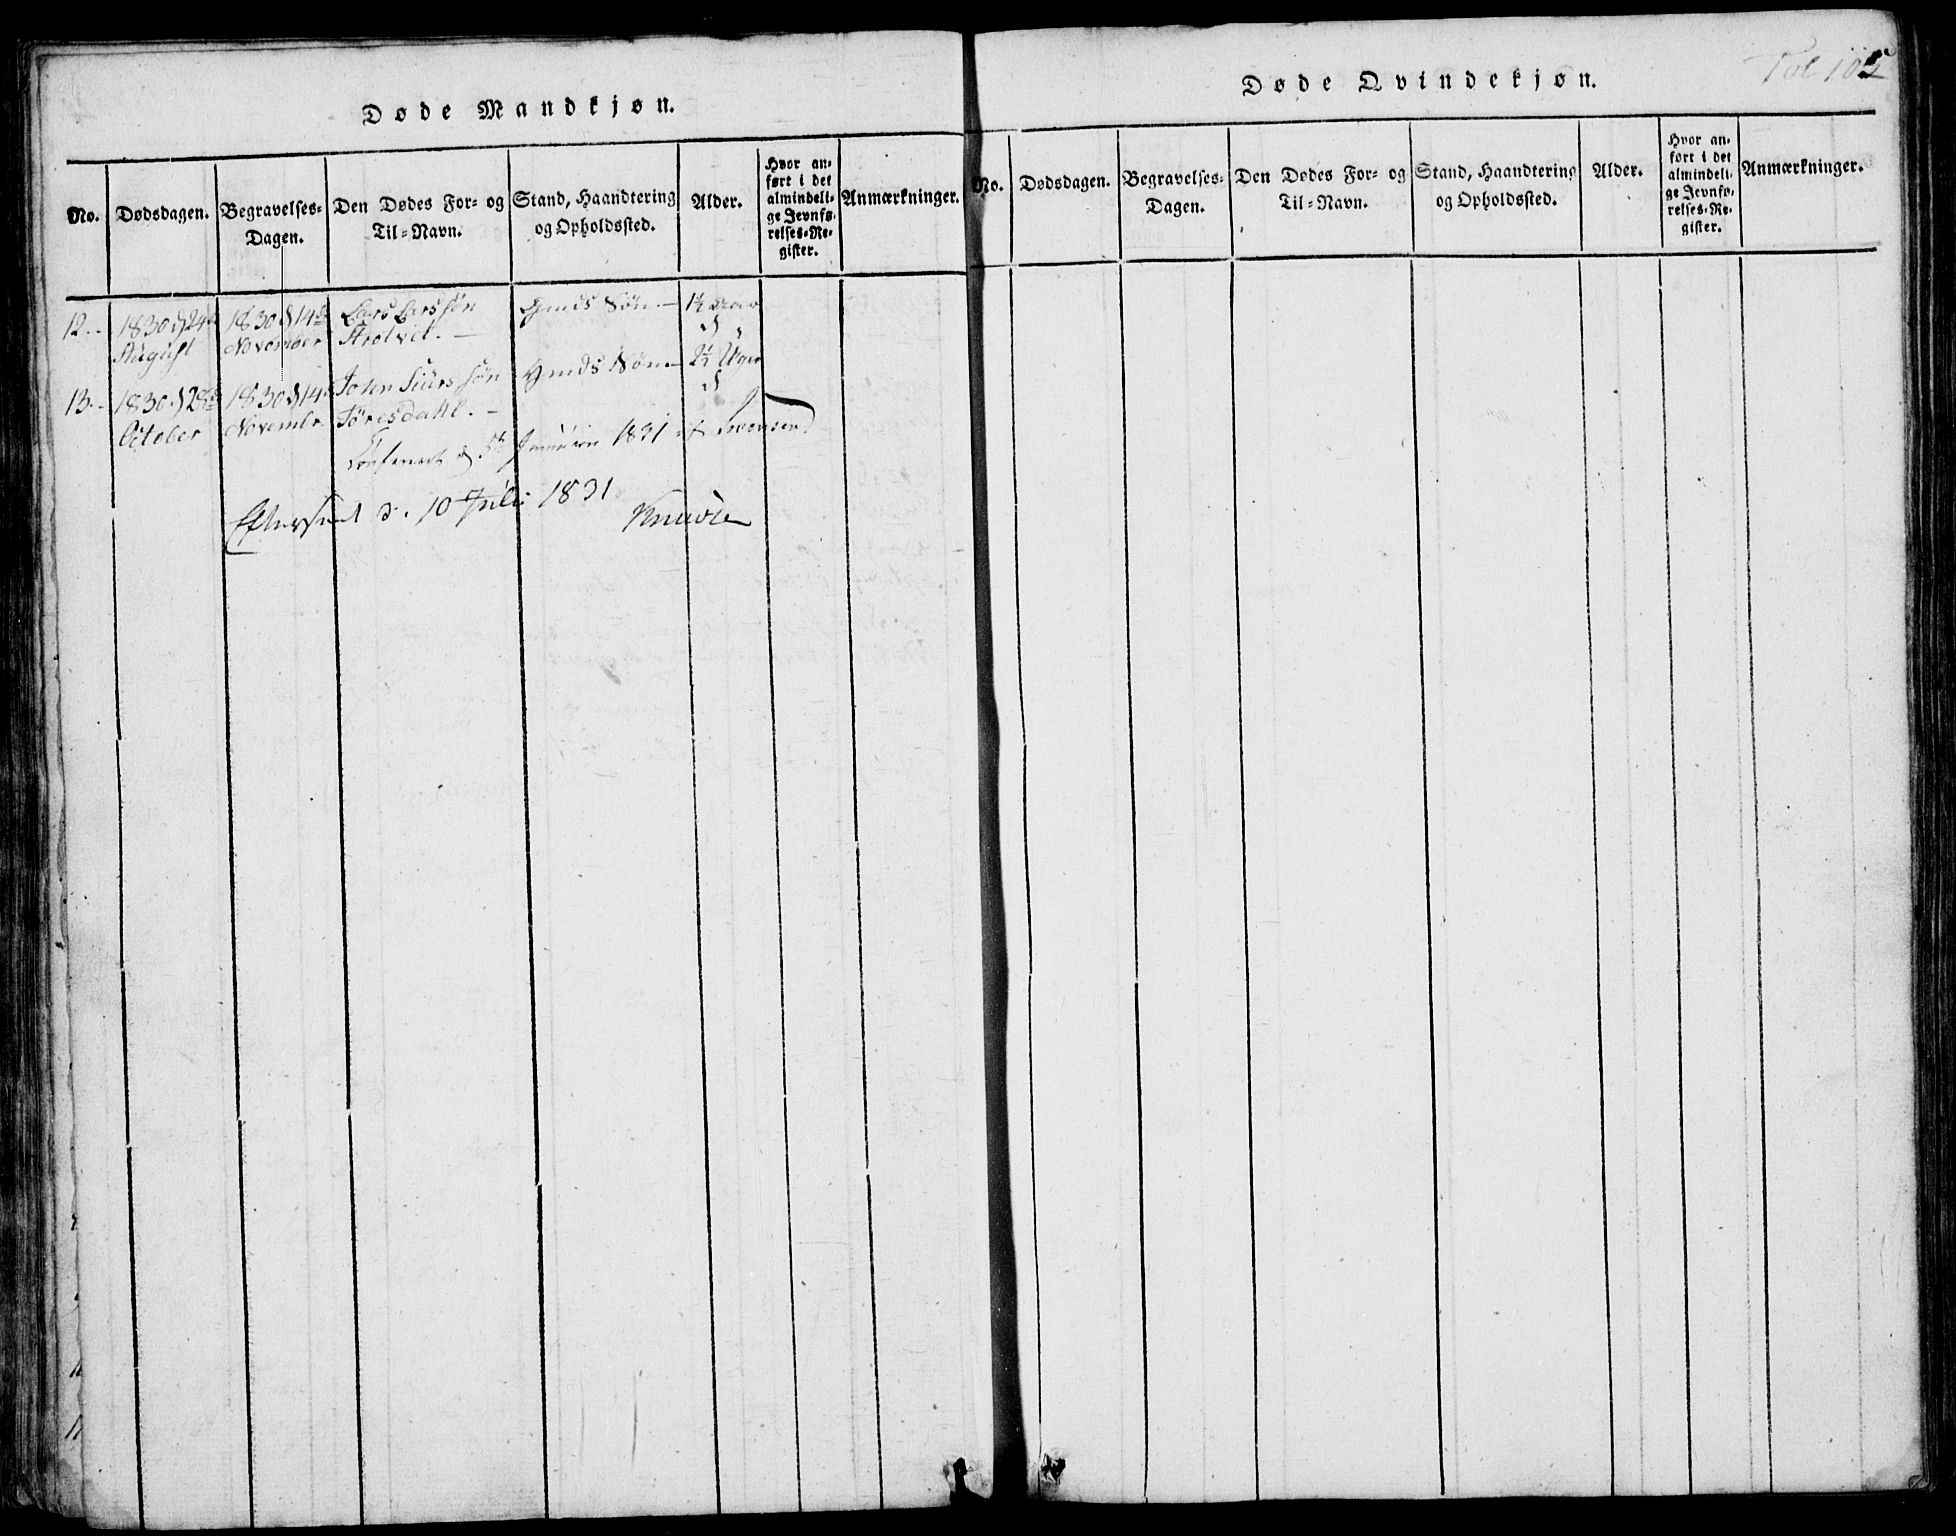 Døde Mandkjøn.
No.
Dødsdagen.
Begravelses-
Dagen.
Den Dødes For- og
Til-Navn.
Stand, Haandtering
og Opholdssted.
Alder.
Hvor an-
ført i det
almindeli-
ge Jevnfø-
relses-Re-
gister.
Anmærkninger.
12.
1830 d 24de
August
1830 d 14de
November
Lars Larssøn
Strotvet.
Gmds Søn.
1½
13.
1830 d 28de
October
1830 d 14de
Novembr
John Siurssøn
Føresdahl.
Gmds Søn
2½ Uger
Confereret d 5te Januari 1831 af Svensen
Efterseet d. 10 Juli 1831
Døde Qvindekjøn.
Fol 105
No.
Dødsdagen.
Begravelses-
Dagen.
Den Dødes For- og
Til-Navn.
Stand, Haandtering
og Opholdssted.
Alder.
Hvor an-
ført i det
almindeli-
ge Jevnfø-
relses-Re-
gister.
Anmærkninger.